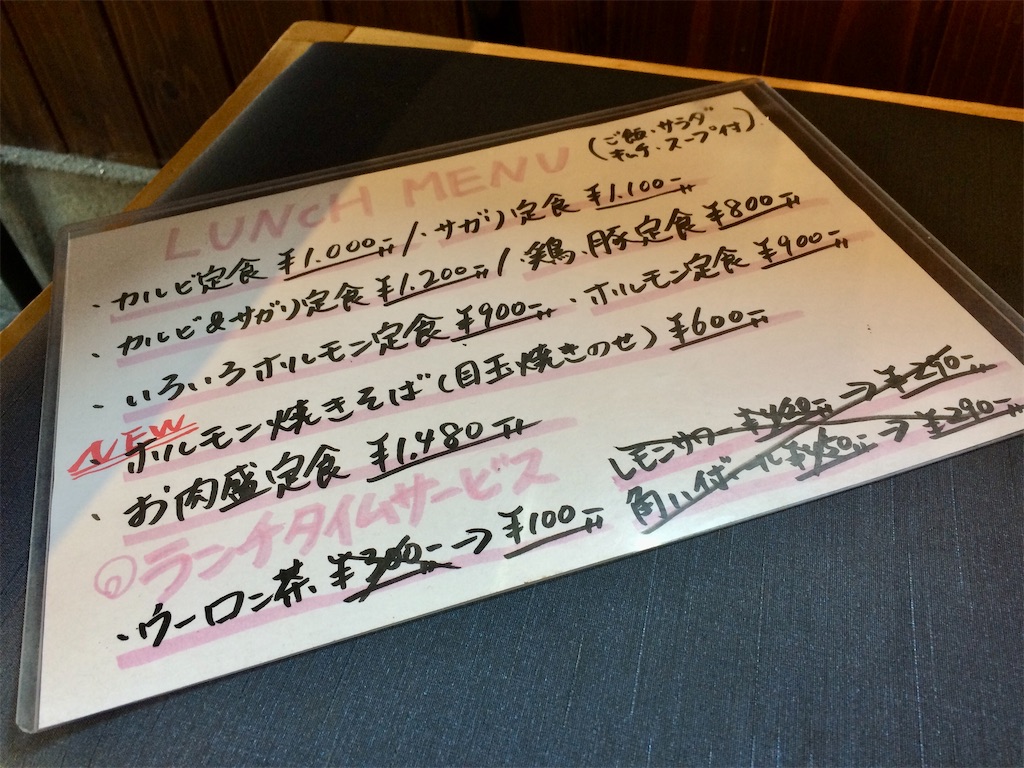 LUNCH MENU (ご飯・サラダ
キムチ・スープ付)
・カルビ定食 ¥1.000- / ・サガリ定食 ¥1.100-
・カルビ&サガリ定食 ¥1.200- / ・鶏、豚定食 ¥800-
・いろいろホルモン定食 ¥900- ・ホルモン定食 ¥900-
NEW
・ホルモン焼きそば(目玉焼きのせ) ¥600-
・お肉盛定食 ¥1.480-
ランチタイムサービス
・ウーロン茶 ¥300- → ¥100-
レモンサワー ¥400- → ¥290-
角ハイボール ¥450- → ¥290-